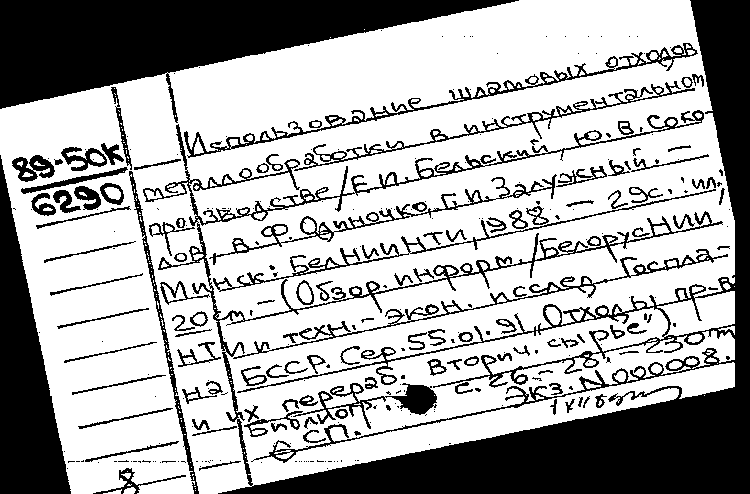 89-50К
6290
Использование шламовых отходов
металлообработки в инструментальном
производстве / Е.И. Бельский, Ю.В. Соко-
лов, В.Ф. Одиночко, Г.И. Залужный. –
Минск: БелНИИНТИ, 1988. – 29с. : ил.;
20 см. – (Обзор. информ. / Белорус НИИ
НТИ и техн. - экон. исслед. Госпла-
на БССР. Сер. 55.01.91 „Отходы пр-ва
и их перераб. Вторич. сырье").
Библиогр.: с. 26-28. – 230 т
Экз. N 000008.
СП.
8